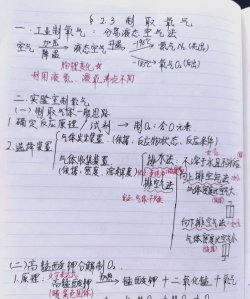 §2.3 制取氧气
一.工业制氧气:分离液态空气法
空气 加压 降温 液态空气 升温 -196℃ 氮气 N₂(先出)
-183℃ 氧气 O₂(后出)
物理变化
利用液氮、液氧沸点不同
二.实验室制氧气
(一)制取气体一般思路
1.确定反应原理/试剂 → 制O₂:含O元素
2.选择装置
气体发生装置(依据:反应物状态、反应条件)
气体收集装置
(依据:密度、溶解性)
排水法:不溶于水且不
排空气法
向上排空气法
气体密度比空气大
向下排空气法
气体密度比空气小
(二)高锰酸钾分解制O₂
1.原理:
高锰酸钾 加热 锰酸钾+二氧化锰+氧气